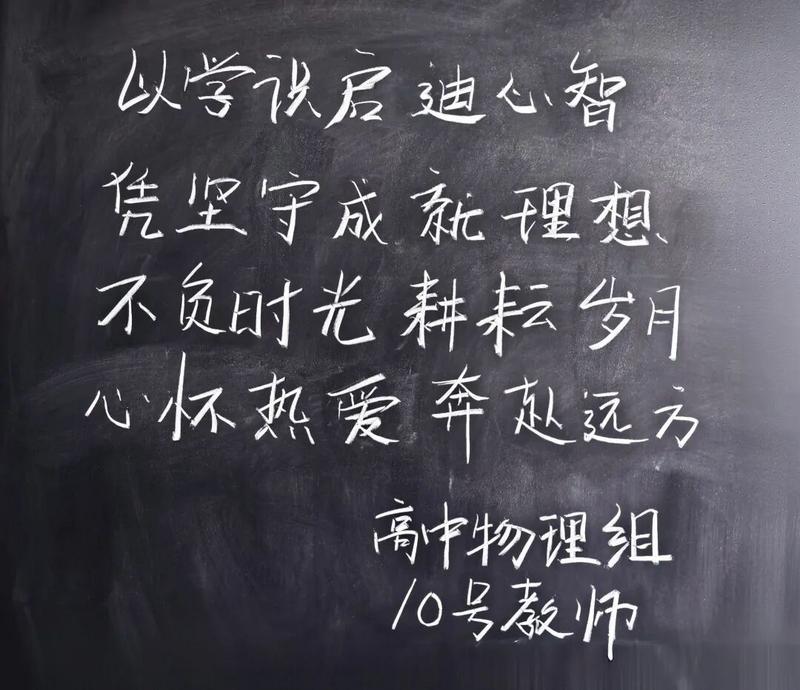 以学识启迪心智
凭坚守成就理想
不负时光耕耘岁月
心怀热爱奔赴远方
高中物理组
10号教师